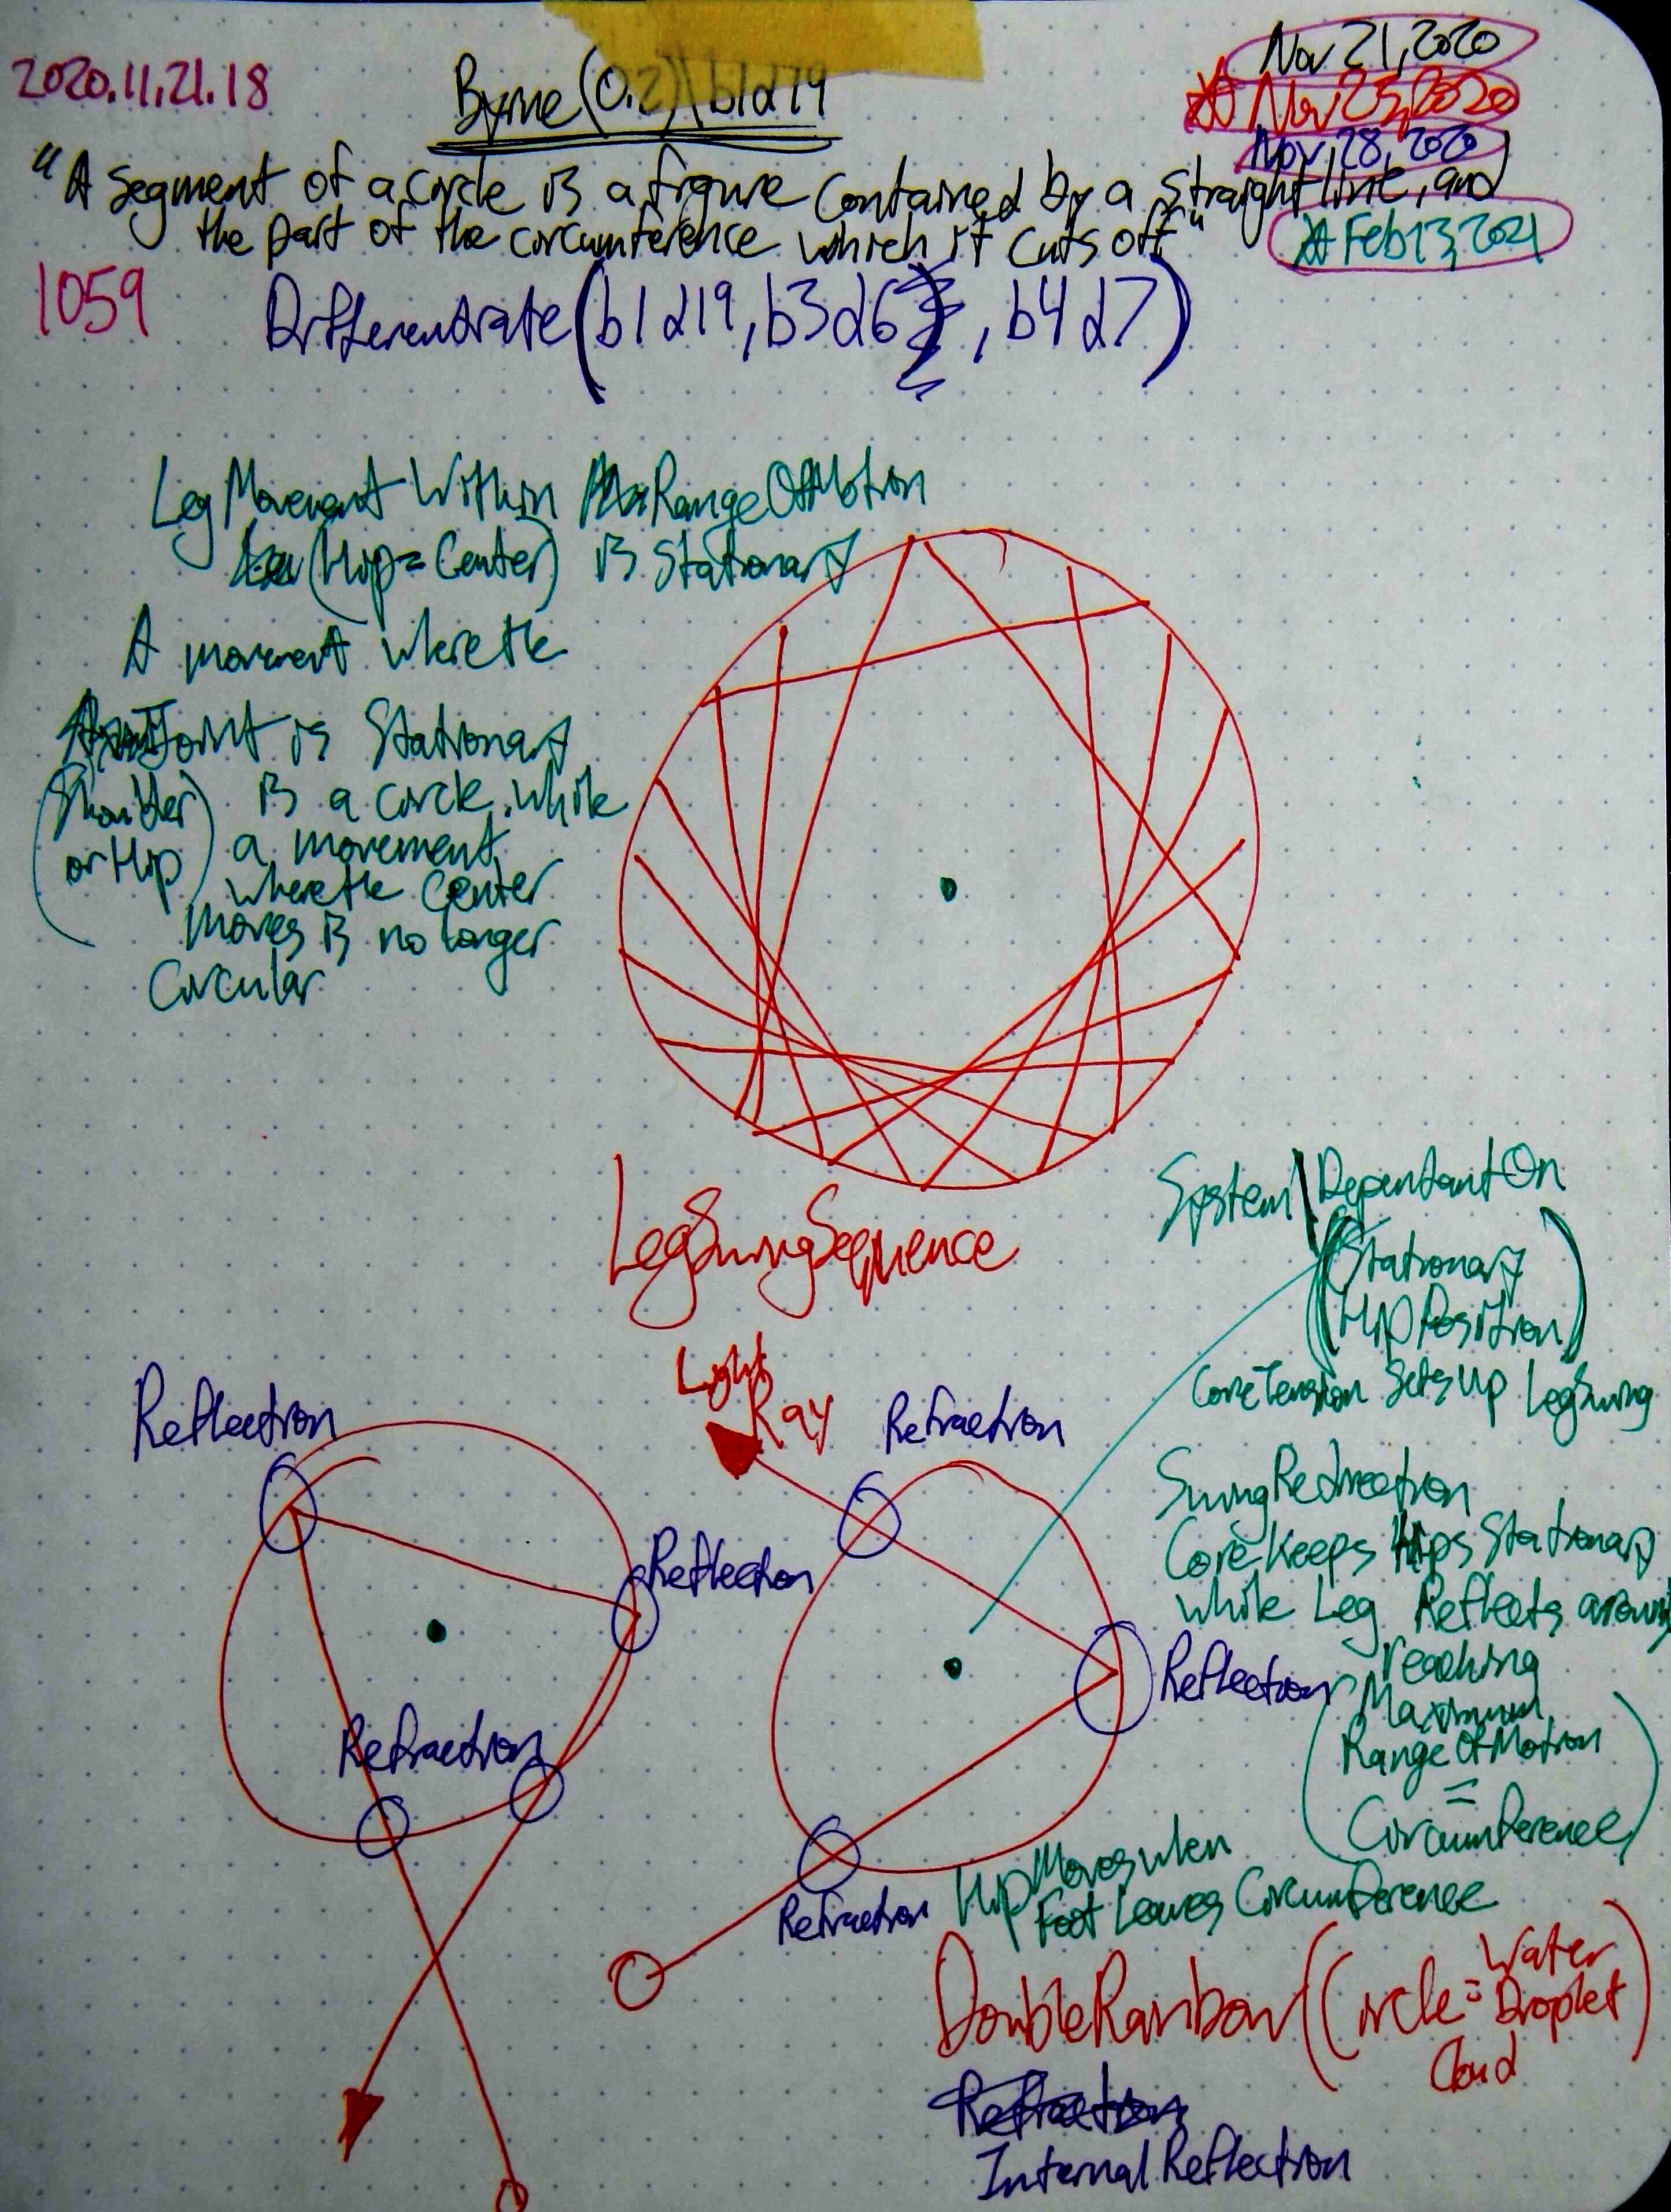 2020.11.21.18
Byrne(0.2)\b1d19
Nov 21, 2020
Nov 25, 2020
Nov 28, 2020
"A segment of a circle is a figure contained by a straight line, and
the part of the circumference which it cuts off"
Feb 13, 2021
1059
Differentiate(b1d19, b3d6, b4d7)
LegMovement Within MaxRangeOfMotion
(Hip=Center) is Stationary
A movement where the
Joint is Stationary
(Shoulder
or Hip)
is a circle, while
a movement
where the center
moves is no longer
Circular
LegSwingSequence
System\DependantOn
(Stationary
HipPosition)
CoreTension Sets up LegSwing
Light
Ray
Reflection
Refraction
Reflection
Refraction
Reflection
Refraction
SwingRedirection
Core Keeps Hips Stationary
while Leg Reflects around
reaching
Maximum
Range Of Motion
=
Circumference
Hip Moves when
Foot Leaves Circumference
DoubleRainbow(Circle = Water
Droplet)
Cloud
Refraction
Internal Reflection